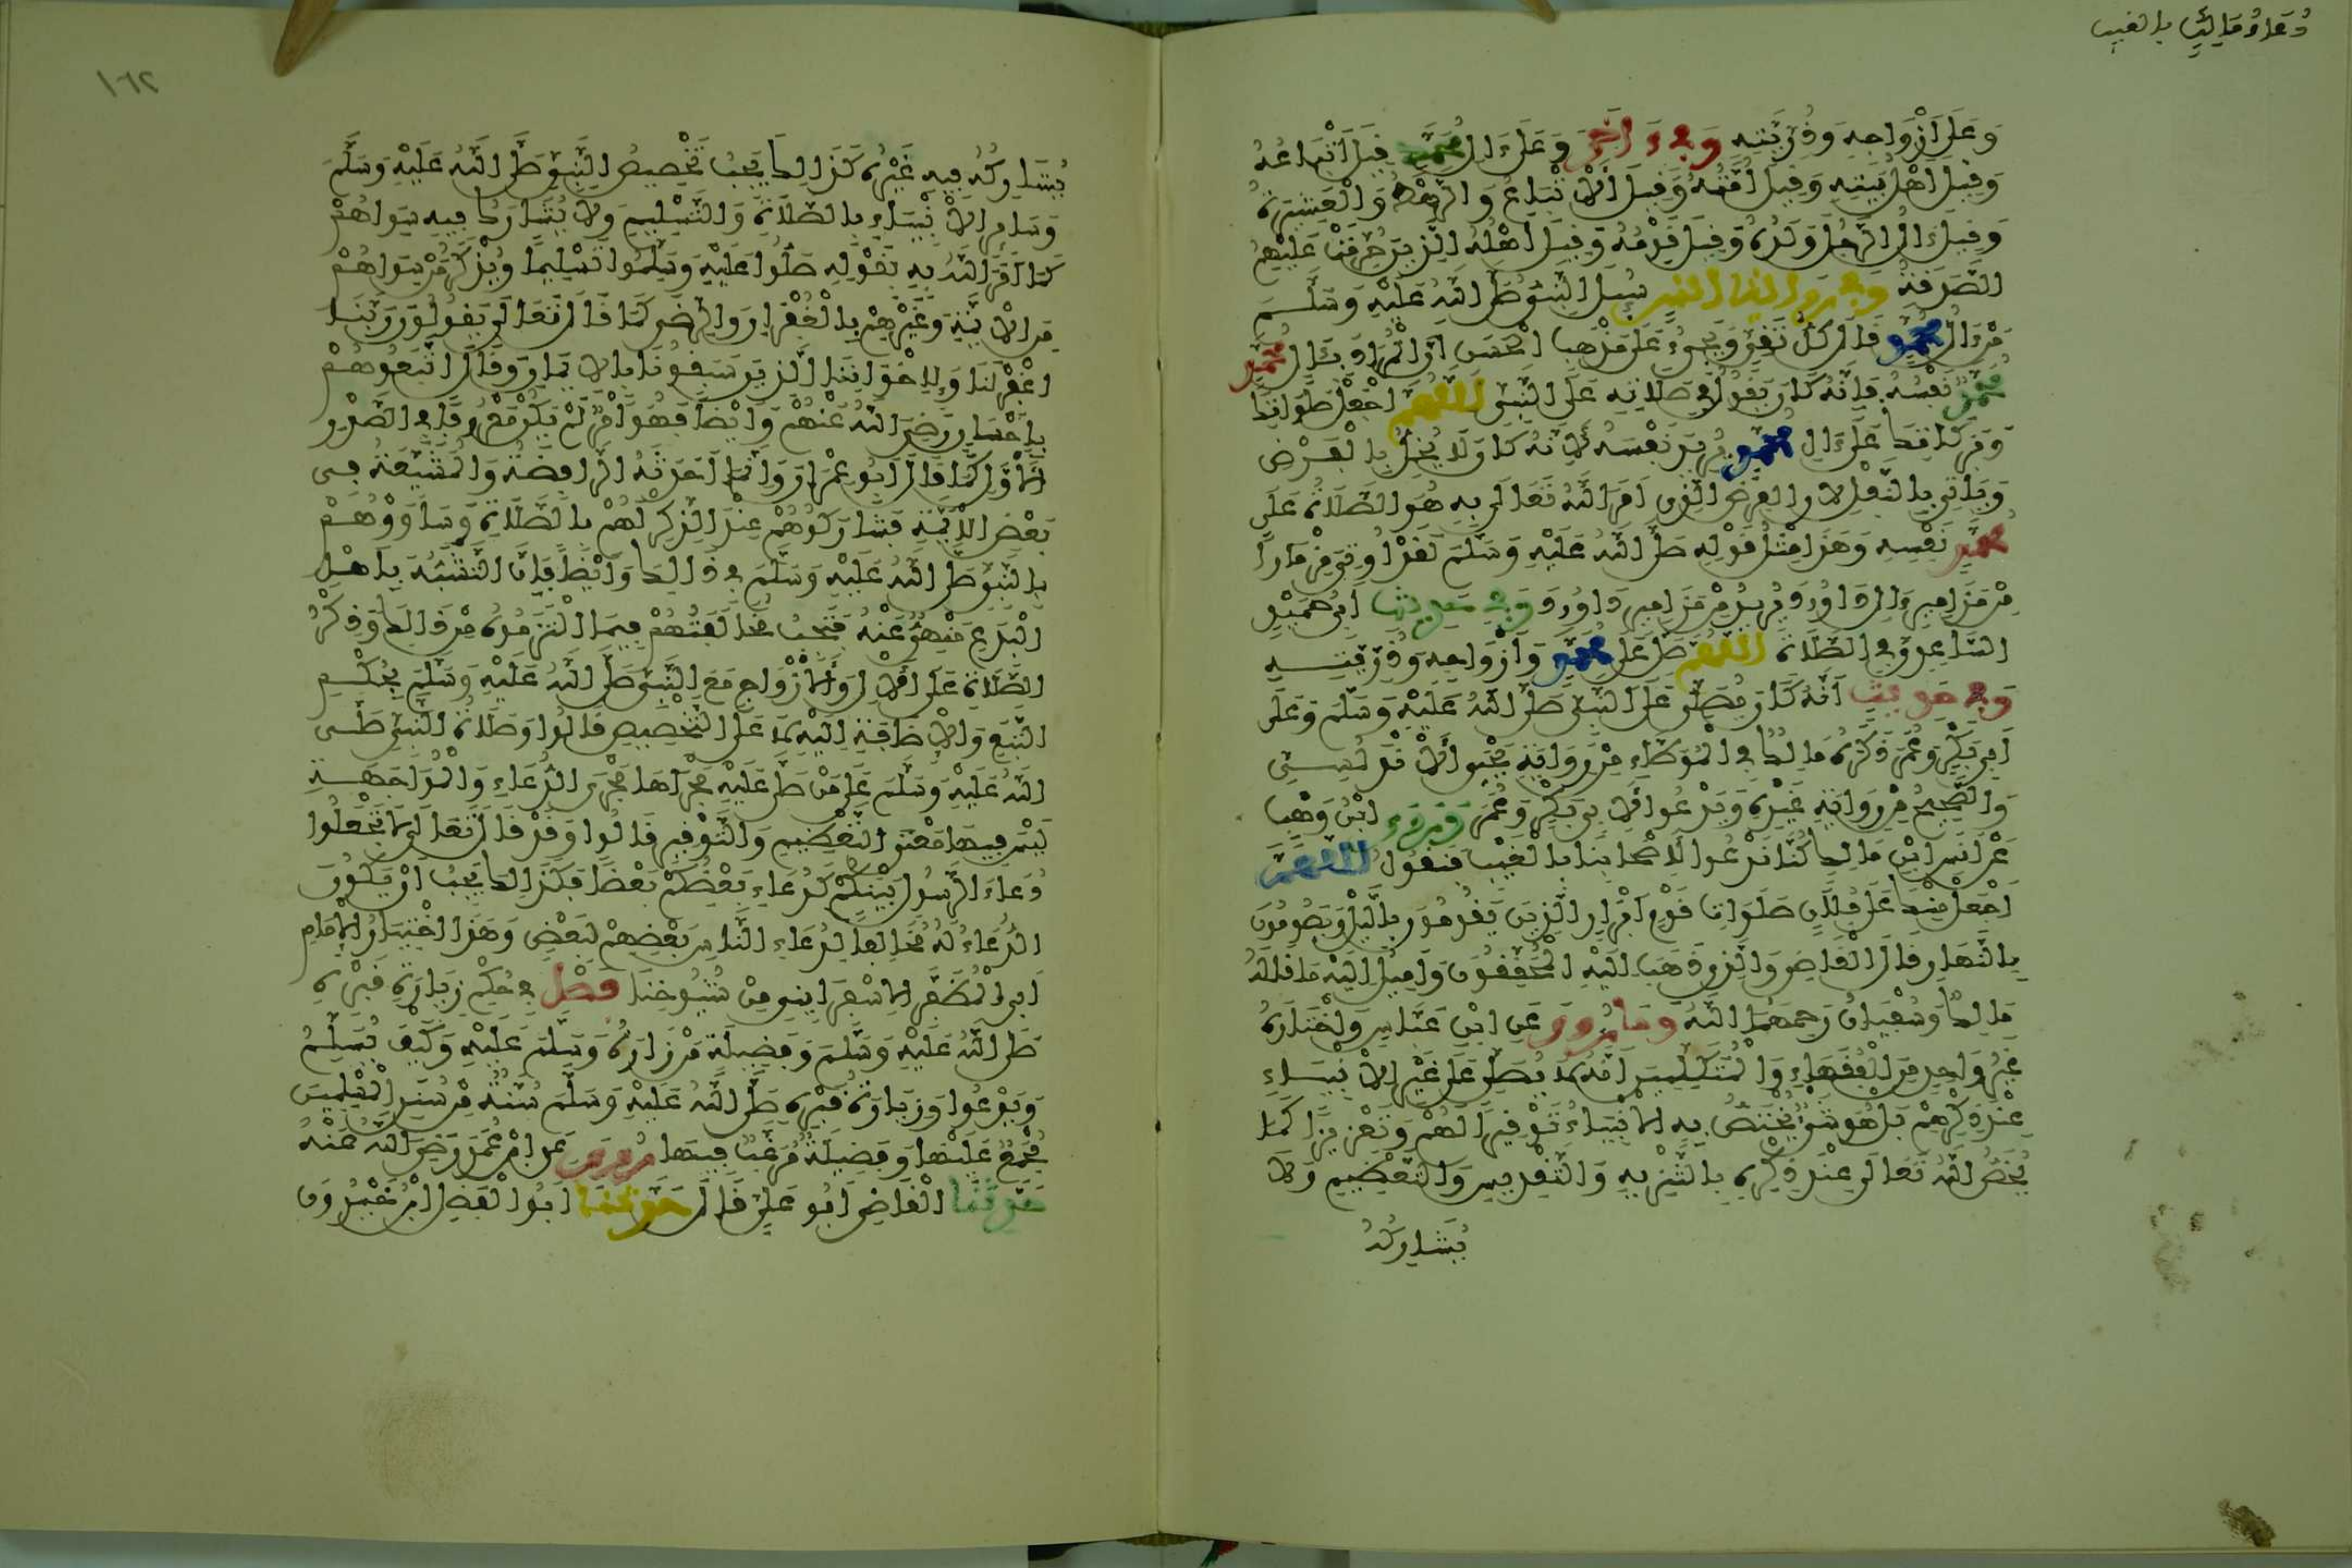 دُعَاءُ مَالِكٍ بالغيب
وَعَلَى أَزْوَاجِهِ وَذُرِّيَّتِهِ وَفِي آخَرَ وَعَلَى آلِ مُحَمَّدٍ قِيلَ أَتْبَاعُهُ
وَقِيلَ أَهْلُ بَيْتِهِ وَقِيلَ أُمَّتُهُ وَقِيلَ الْأَتْبَاعُ وَالرَّهْطُ وَالْعَشِيرَةُ
وَقِيلَ آلُ الرَّجُلِ وَلَدُهُ وَقِيلَ قَوْمُهُ وَقِيلَ أَهْلُهُ الَّذِينَ حُرِّمَتْ عَلَيْهِمُ
الصَّدَقَةُ وَفِي رواية أنس سُئِلَ النَّبِيُّ صَلَّى اللَّهُ عَلَيْهِ وَسَلَّمَ
مَنْ آلُ مُحَمَّدٍ قَالَ كُلُّ تَقِيٍّ وَيَجِيءُ عَلَى مَذْهَبِ الْحَسَنِ أَنَّ الْمُرَادَ بِآلِ مُحَمَّدٍ
مُحَمَّدٌ نَفْسُهُ فَإِنَّهُ كَانَ يَقُولُ فِي صَلَاتِهِ عَلَى النَّبِيِّ اللَّهُمَّ اجْعَلْ صَلَوَاتِكَ
وَبَرَكَاتِكَ عَلَى آلِ مُحَمَّدٍ يُرِيدُ نَفْسَهُ لِأَنَّهُ كَانَ لَا يُخِلُّ بِالْفَرْضِ
وَيَأْتِي بِالنَّفْلِ لأن الفرض الَّذِي أَمَرَ اللَّهُ تَعَالَى بِهِ هُوَ الصَّلَاةُ عَلَى
مُحَمَّدٍ نَفْسِهِ وَهَذَا مِثْلُ قَوْلِهِ صَلَّى اللَّهُ عَلَيْهِ وَسَلَّمَ لَقَدْ أُوتِيَ مِزْمَارًا
مِنْ مَزَامِيرِ آلِ دَاوُدَ يُرِيدُ مِنْ مَزَامِيرِ دَاوُدَ وَفِي حَدِيثِ أَبِي حُمَيْدٍ
السَّاعِدِيِّ فِي الصَّلَاةِ اللَّهُمَّ صَلِّ عَلَى مُحَمَّدٍ وَأَزْوَاجِهِ وَذُرِّيَّتِهِ
وَفِي حَدِيثِ أَنَّهُ كَانَ يُصَلِّي عَلَى النَّبِيِّ صَلَّى اللَّهُ عَلَيْهِ وَسَلَّمَ وَعَلَى
أَبِي بَكْرٍ وَعُمَرَ ذَكَرَهُ مَالِكٌ فِي الْمُوَطَّإِ مِنْ رِوَايَةِ يَحْيَى الْأَنْدَلُسِيِّ
وَالصَّحِيحُ مِنْ رِوَايَةِ غَيْرِهِ وَيَدْعُو لِأَبِي بَكْرٍ وَعُمَرَ وَرَوَى ابْنُ وَهْبٍ
عَنْ أَنَسِ ابْنِ مَالِكٍ كُنَّا نَدْعُو لِأَصْحَابِنَا بِالْغَيْبِ فَنَقُولُ اللَّهُمَّ
اجْعَلْ مِنْكَ عَلَى فُلَانٍ صَلَوَاتِ قَوْمٍ أَبْرَارٍ الَّذِينَ يَقُومُونَ بِاللَّيْلِ وَيَصُومُونَ
بِالنَّهَارِ قَالَ الْقَاضِي وَالَّذِي ذَهَبَ إِلَيْهِ الْمُحَقِّقُونَ وَأَمِيلُ إِلَيْهِ مَا قَالَهُ
مَالِكٌ وَسُفْيَانُ رَحِمَهُمَا اللَّهُ وَمَا رُوِيَ عَنِ ابْنِ عَبَّاسٍ وَاخْتَارَهُ
غَيْرُ وَاحِدٍ مِنَ الْفُقَهَاءِ وَالْمُتَكَلِّمِينَ أَنَّهُ لَا يُصَلَّى عَلَى غَيْرِ الْأَنْبِيَاءِ
عِنْدَ ذِكْرِهِمْ بَلْ هُوَ شَيْءٌ يُخْتَصُّ بِهِ الْأَنْبِيَاءُ تَوْقِيرًا لَهُمْ وَتَعْزِيزًا كَمَا
يُخَصُّ اللَّهُ تَعَالَى عِنْدَ ذِكْرِهِ بِالتَّنْزِيهِ وَالتَّقْدِيسِ وَالتَّعْظِيمِ وَلَا
يُشَارِكُهُ
١٦٢
يُشَارِكُهُ فِيهِ غَيْرُهُ كَذَلِكَ يَجِبُ تَخْصِيصُ النَّبِيِّ صَلَّى اللَّهُ عَلَيْهِ وَسَلَّمَ
وَسَائِرِ الْأَنْبِيَاءِ بِالصَّلَاةِ وَالتَّسْلِيمِ وَلَا يُشَارَكُ فِيهِ سِوَاهُمْ
كَمَا أَمَرَ اللَّهُ بِهِ بِقَوْلِهِ صَلُّوا عَلَيْهِ وَسَلِّمُوا تَسْلِيمًا وَيُذْكَرُ مَنْ سِوَاهُمْ
مِنَ الْأَئِمَّةِ وَغَيْرِهِمْ بِالْغُفْرَانِ وَالرِّضَى كَمَا قَالَ تَعَالَى يَقُولُونَ رَبَّنَا
اغْفِرْ لَنَا وَلِإِخْوَانِنَا الَّذِينَ سَبَقُونَا بِالْإِيمَانِ وَقَالَ اتَّبَعُوهُمْ
بِإِحْسَانٍ رَضِيَ اللَّهُ عَنْهُمْ وَأَيْضًا فَهُوَ أَمْرٌ لَمْ يَكُنْ مَعْرُوفًا فِي الصَّدْرِ
الْأَوَّلِ كَمَا قَالَ أَبُو عِمْرَانَ وَإِنَّمَا أَحْدَثَهُ الرَّافِضَةُ وَالْمُتَشَيِّعَةُ فِي
بَعْضِ الْأَئِمَّةِ فَشَارَكُوهُمْ عِنْدَ الذِّكْرِ لَهُمْ بِالصَّلَاةِ وَسَاوَوْهُمْ
بِالنَّبِيِّ صَلَّى اللَّهُ عَلَيْهِ وَسَلَّمَ فِي ذَلِكَ وَأَيْضًا فَإِنَّ التَّشَبُّهَ بِأَهْلِ
الْبِدَعِ مَنْهِيٌّ عَنْهُ فَتَجِبُ مُخَالَفَتُهُمْ فِيمَا الْتَزَمُوهُ مِنْ ذَلِكَ وَذِكْرُ
الصَّلَاةِ عَلَى الْآلِ وَالْأَزْوَاجِ مَعَ النَّبِيِّ صَلَّى اللَّهُ عَلَيْهِ وَسَلَّمَ بِحُكْمِ
التَّبَعِ وَالْإِضَافَةِ إِلَيْهِ لَا عَلَى التَّخْصِيصِ قَالُوا وَصَلَاةُ النَّبِيِّ صَلَّى
اللَّهُ عَلَيْهِ وَسَلَّمَ عَلَى مَنْ صَلَّى عَلَيْهِ مَجْرَاهَا مَجْرَى الدُّعَاءِ وَالْمُوَاجَهَةِ
لَيْسَ فِيهَا مَعْنَى التَّعْظِيمِ وَالتَّوْقِيرِ قَالُوا وَقَدْ قَالَ تَعَالَى لَا تَجْعَلُوا
دُعَاءَ الرَّسُولِ بَيْنَكُمْ كَدُعَاءِ بَعْضِكُمْ بَعْضًا فَكَذَلِكَ يَجِبُ أَنْ يَكُونَ
الدُّعَاءُ لَهُ مُخَالِفًا لِدُعَاءِ النَّاسِ بَعْضِهِمْ لِبَعْضٍ وَهَذَا اخْتِيَارُ الْإِمَامِ
أَبِي الْمُظَفَّرِ الْإِسْفَرَايِنِيِّ مِنْ شُيُوخِنَا فَصْلٌ فِي حُكْمِ زِيَارَةِ قَبْرِهِ
صَلَّى اللَّهُ عَلَيْهِ وَسَلَّمَ وَفَضِيلَةِ مَنْ زَارَهُ وَسَلَّمَ عَلَيْهِ وَكَيْفَ يُسَلِّمُ
وَيَدْعُو وَزِيَارَةُ قَبْرِهِ صَلَّى اللَّهُ عَلَيْهِ وَسَلَّمَ سُنَّةٌ مِنْ سُنَنِ الْمُسْلِمِينَ
مُجْمَعٌ عَلَيْهَا وَفَضِيلَةٌ مُرَغَّبٌ فِيهَا رُوِيَ عَنِ ابْنِ عُمَرَ رَضِيَ اللَّهُ عَنْهُ
حَدَّثَنَا الْقَاضِي أَبُو عَلِيٍّ قَالَ حَدَّثَنَا أَبُو الْفَضْلِ ابْنُ خَيْرُونَ